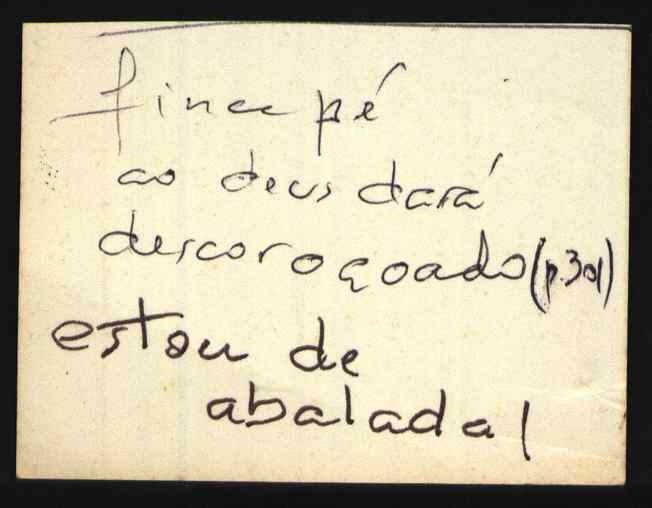 finca pé
ao deus dará
descoroçoado (p. 301)
estou de
abalada!